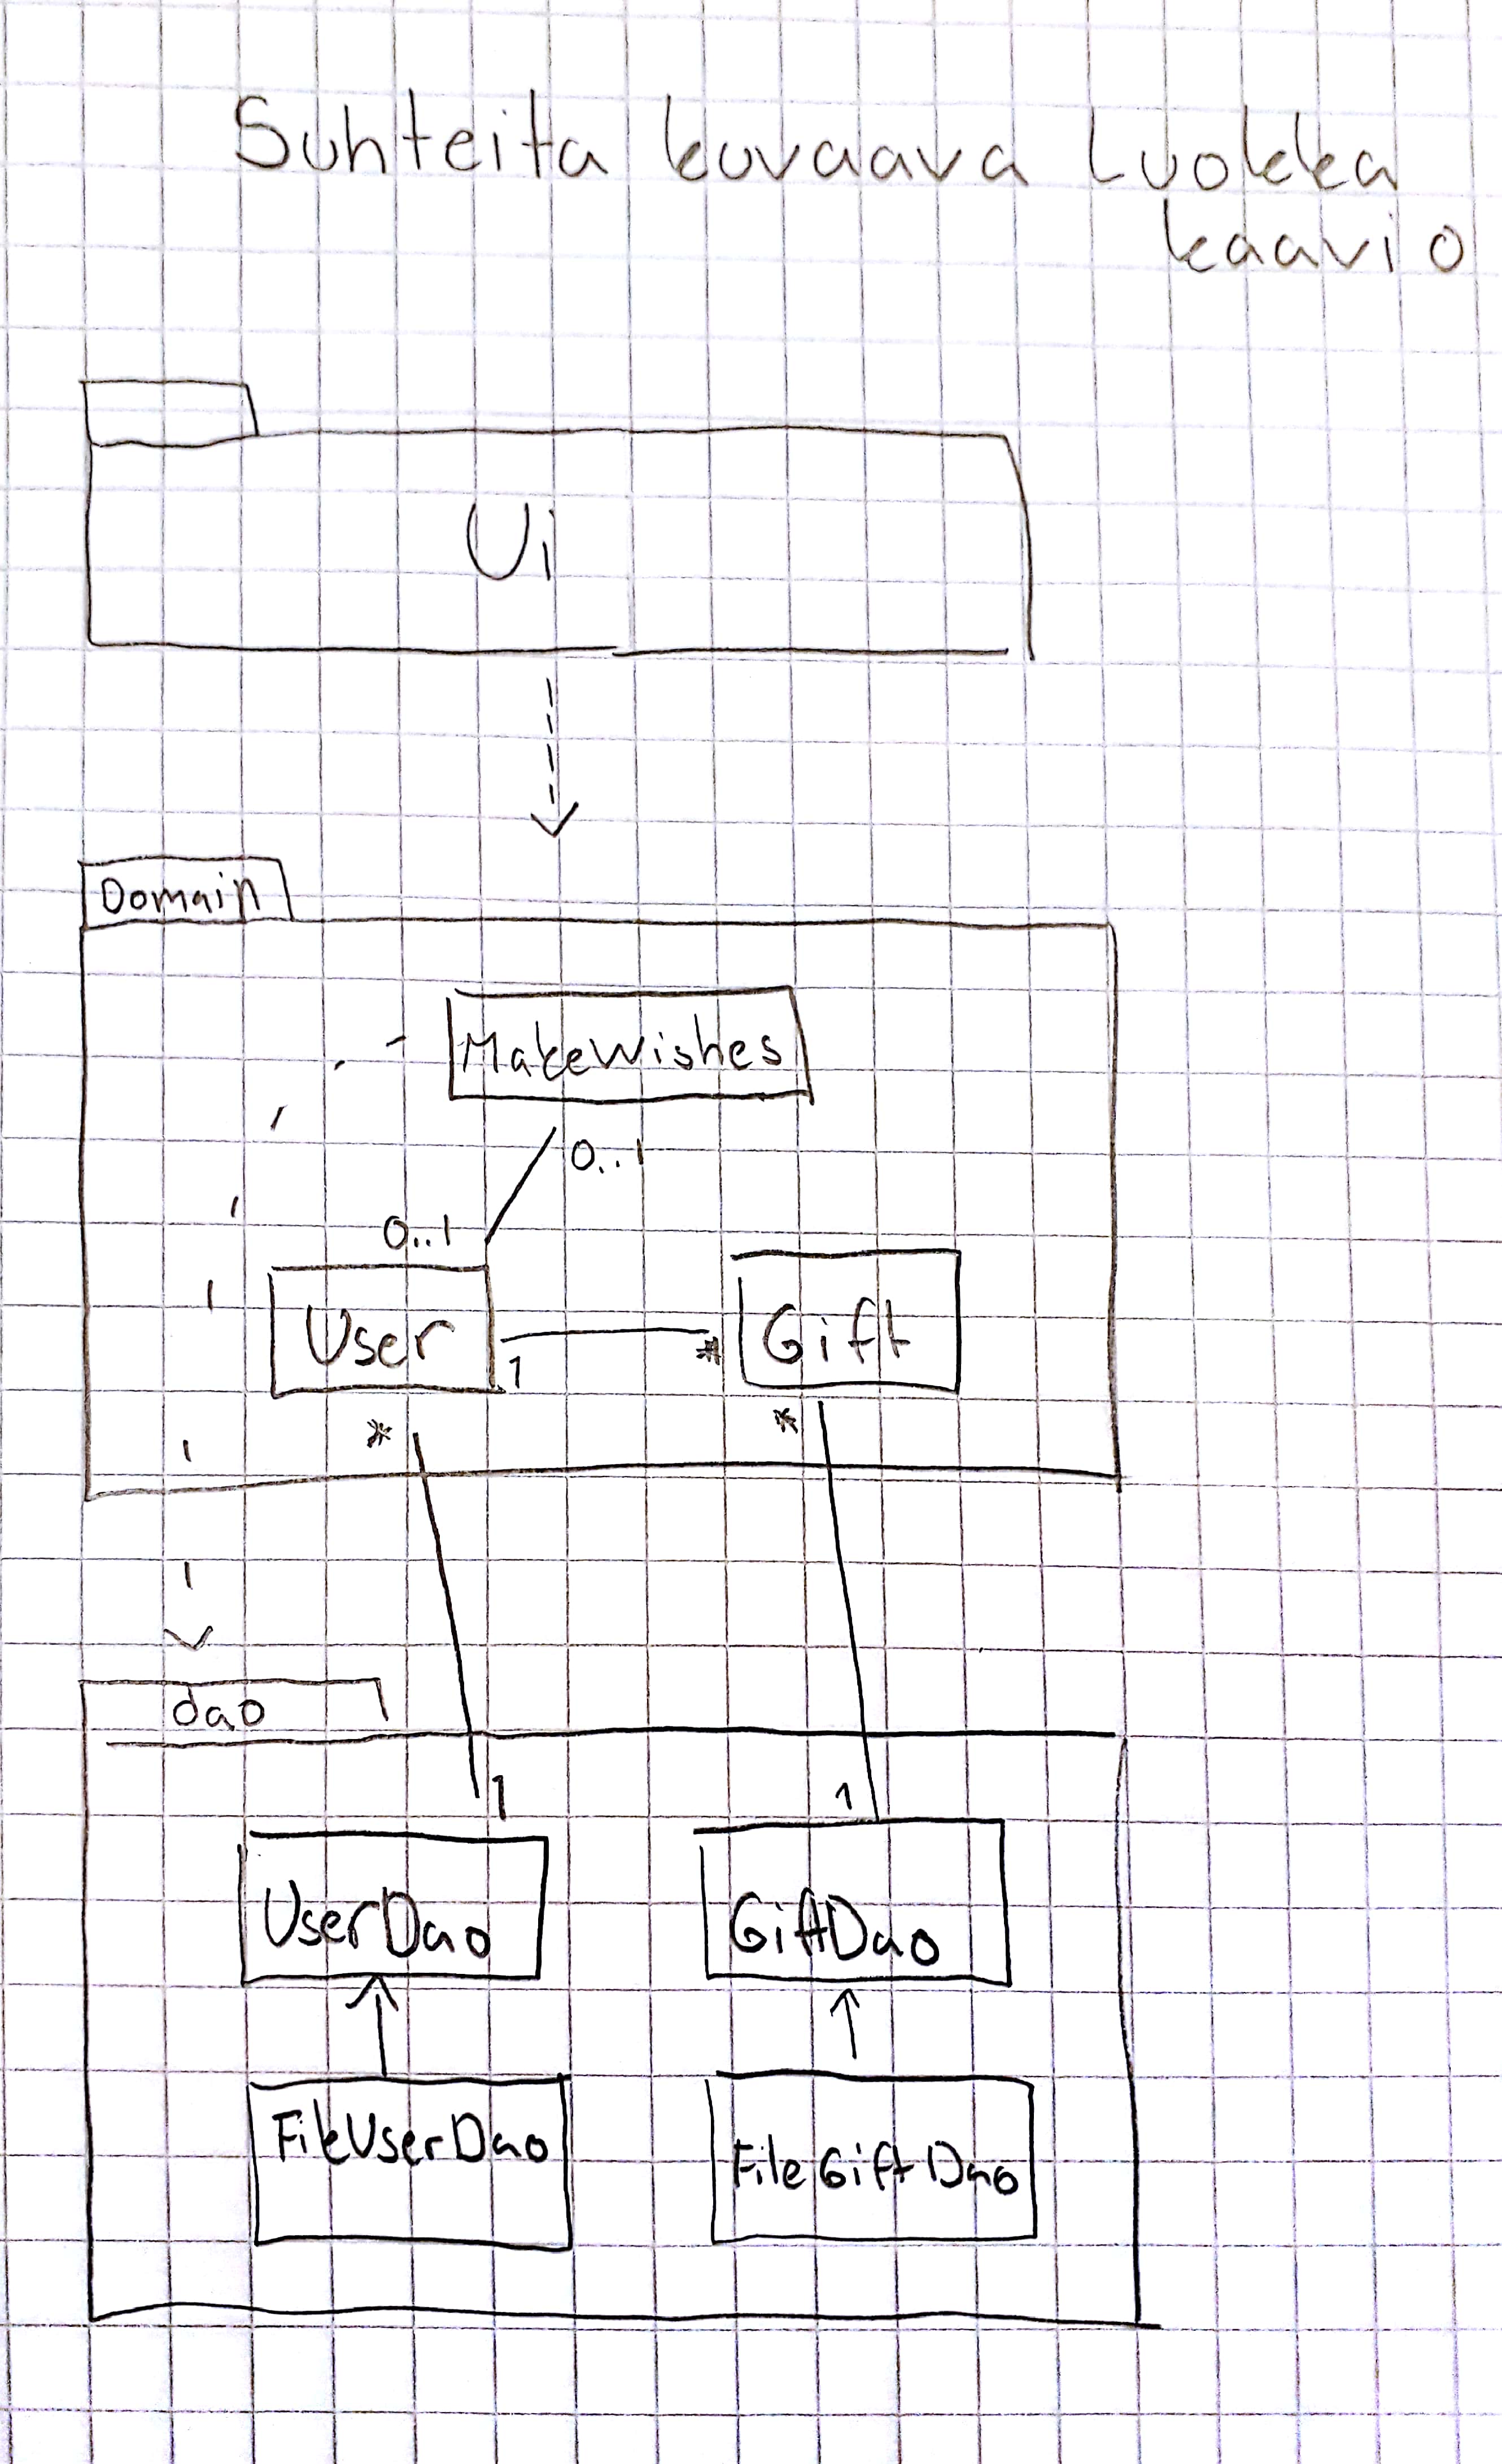 Suhteita kuvaava Luokka
kaavio
Ui
Domain
MakeWishes
0..1
0..1
User
Gift
1
*
*
*
dao
1
1
UserDao
GiftDao
FileUserDao
FileGiftDao